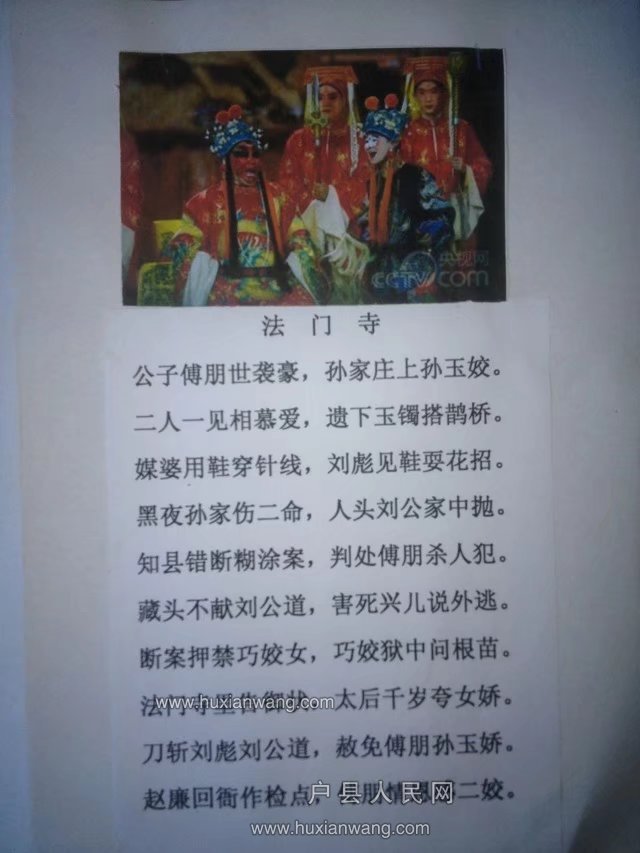 央视网
CCTV com
法门寺
公子傅朋世袭豪，孙家庄上孙玉姣。
二人一见相慕爱，遗下玉镯搭鹊桥。
媒婆用鞋穿针线，刘彪见鞋耍花招。
黑夜孙家伤二命，人头刘公家中抛。
知县错断糊涂案，判处傅朋杀人犯。
藏头不献刘公道，害死兴儿说外逃。
断案押禁巧姣女，巧姣狱中问根苗。
法门寺里告御状 太后千岁夸女娇。
www.huxianwang.com
刀斩刘彪刘公道，赦免傅朋孙玉娇。
赵廉回衙作检点， 朋情 二姣。
户县人民网
www.huxianwang.com